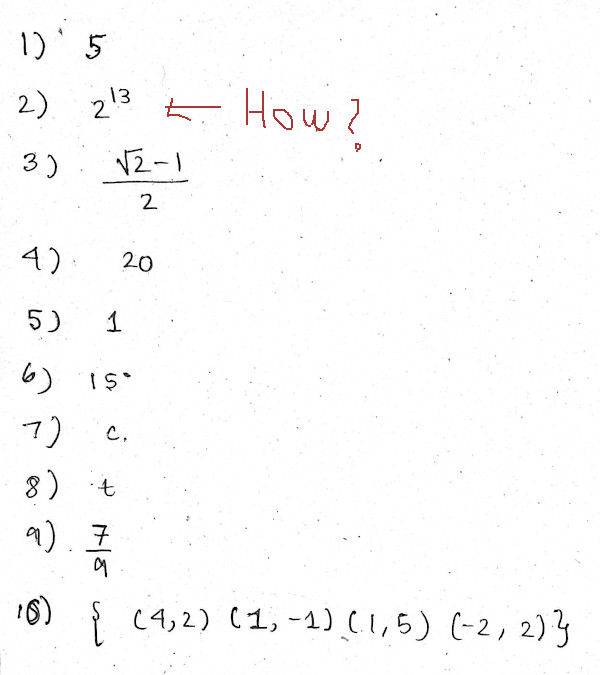 1) 5
2) 2^13 ← How?
3) (√2-1)/2
4) 20
5) 1
6) 15°
7) c.
8) t
9) 7/9
10) { (4,2) (1,-1) (1,5) (-2, 2)}